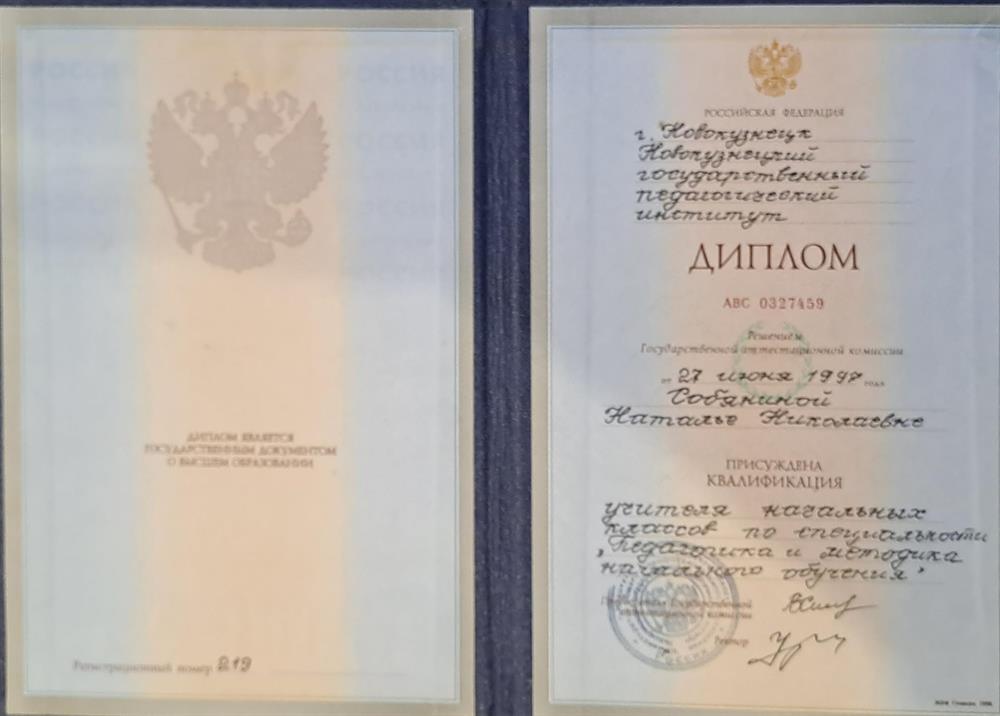 ДИПЛОМ ЯВЛЯЕТСЯ
ГОСУДАРСТВЕННЫМ ДОКУМЕНТОМ
О ВЫСШЕМ ОБРАЗОВАНИИ
Регистрационный номер 219
РОССИЙСКАЯ ФЕДЕРАЦИЯ
г. Новокузнецк
Новокузнецкий
государственный
педагогический
институт
ДИПЛОМ
АВС 0327459
Решением
Государственной аттестационной комиссии
от 27 июня 1997 года
Собяниной
Наталье Николаевне
ПРИСУЖДЕНА
КВАЛИФИКАЦИЯ
учителя начальных
классов по специальности
„Педагогика и методика
начального обучения"
Председатель Государственной
аттестационной комиссии
Ректор
Россия